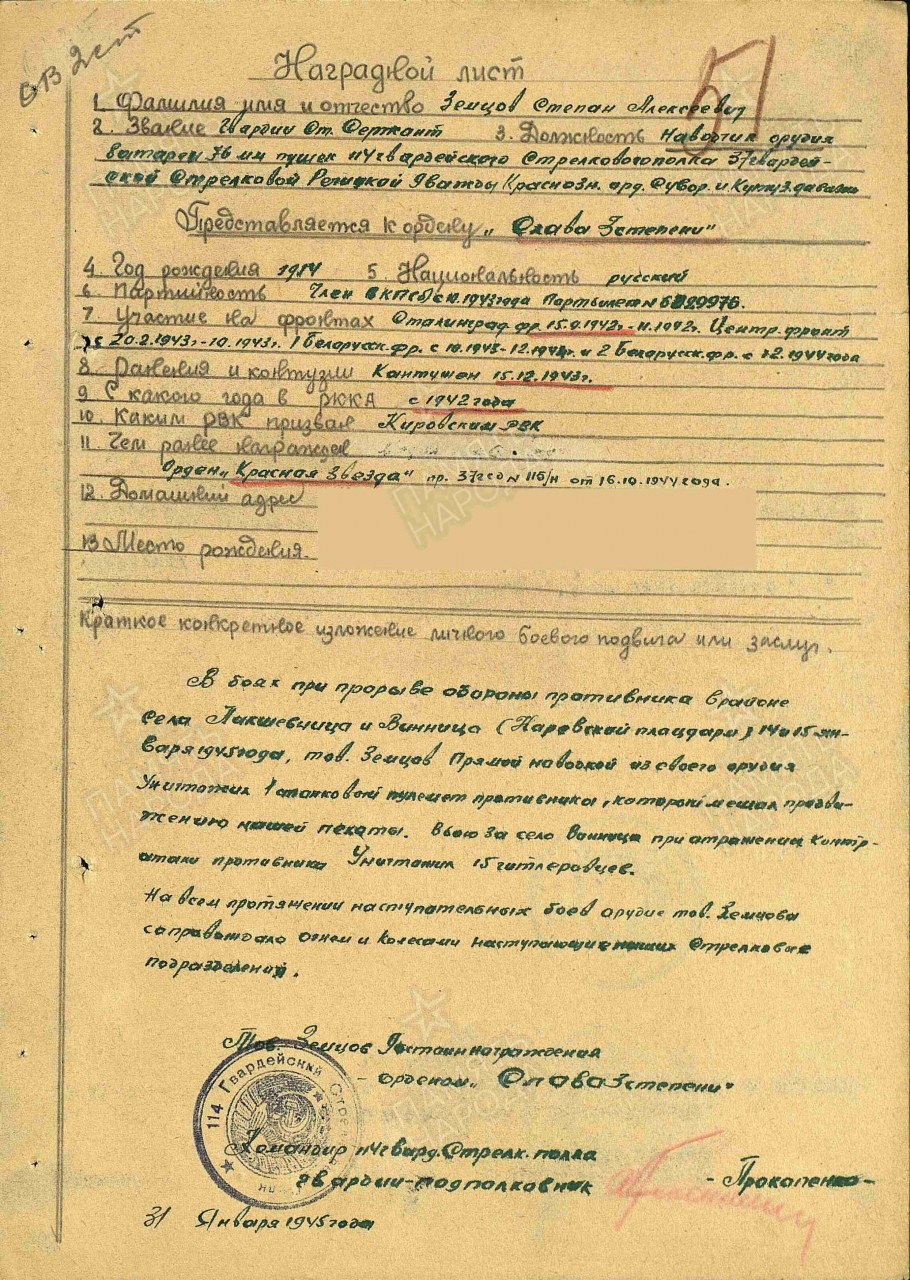 ОВ 2 ст
51
Наградной лист
1. Фамилия имя и отчество Земцов Степан Алексеевич
2. Звание Гвардии Ст. Сержант 3. Должность Наводчик орудия
батареи 76 мм пушек 114 гвардейского Стрелкового полка 37 гвардей-
ской Стрелковой Речицкой Дважды Краснозн. орд. Сувор. и Кутуз. дивизии
Представляется к ордену „Слава 3 степени"
4. Год рождения 1914 5. Национальность русский
6. Партийность Член ВКП(б) с 10.1943 года Партбилет №
7. Участие на фронтах Сталинград. фр. 15.9.1942г.-11.1942г. Центр. фронт
с 20.2.1943г-10.1943г. 1 Белорусск. фр. с 10.1943-12.1944г и 2 Белорусск. фр. с 12.1944 года
8. Ранения и контузии Кантужен 15.12.1943г.
9 С какого года в РККА с 1942 года
10. Каким РВК призван Кировским РВК
11. Чем ранее награжден
Орден „Красная Звезда" пр. 37гсд № 116/н от 16.10.1944 года.
12. Домашний адрес
13 Место рождения.
Краткое конкретное изложение личного боевого подвига или заслуг.
В боях при прорыве обороны противника в районе
села Лакшевница и Винница (Наровский плацдарм) 14 и 15 ян-
варя 1945 года, тов. Земцов Прямой наводкой из своего орудия
Уничтожил 1 станковый пулемет противника, который мешал продви-
жению нашей пехоты. В бою за село Винница при отражении контр-
атаки противника Уничтожил 15 гитлеровцев.
На всем протяжении наступательных боев орудие тов. Земцова
сопровождало огнем и колесами наступающие наших Стрелковых
подразделений.
Тов. Земцов Достоин награждения
- орденом „Слава 3 степени"
114 Гвардейский
Командир 114 гвард. Стрелк. полка
гвардии-подполковник - Прокопенко -
31 Января 1945 года
ПАМЯТЬ НАРОДА